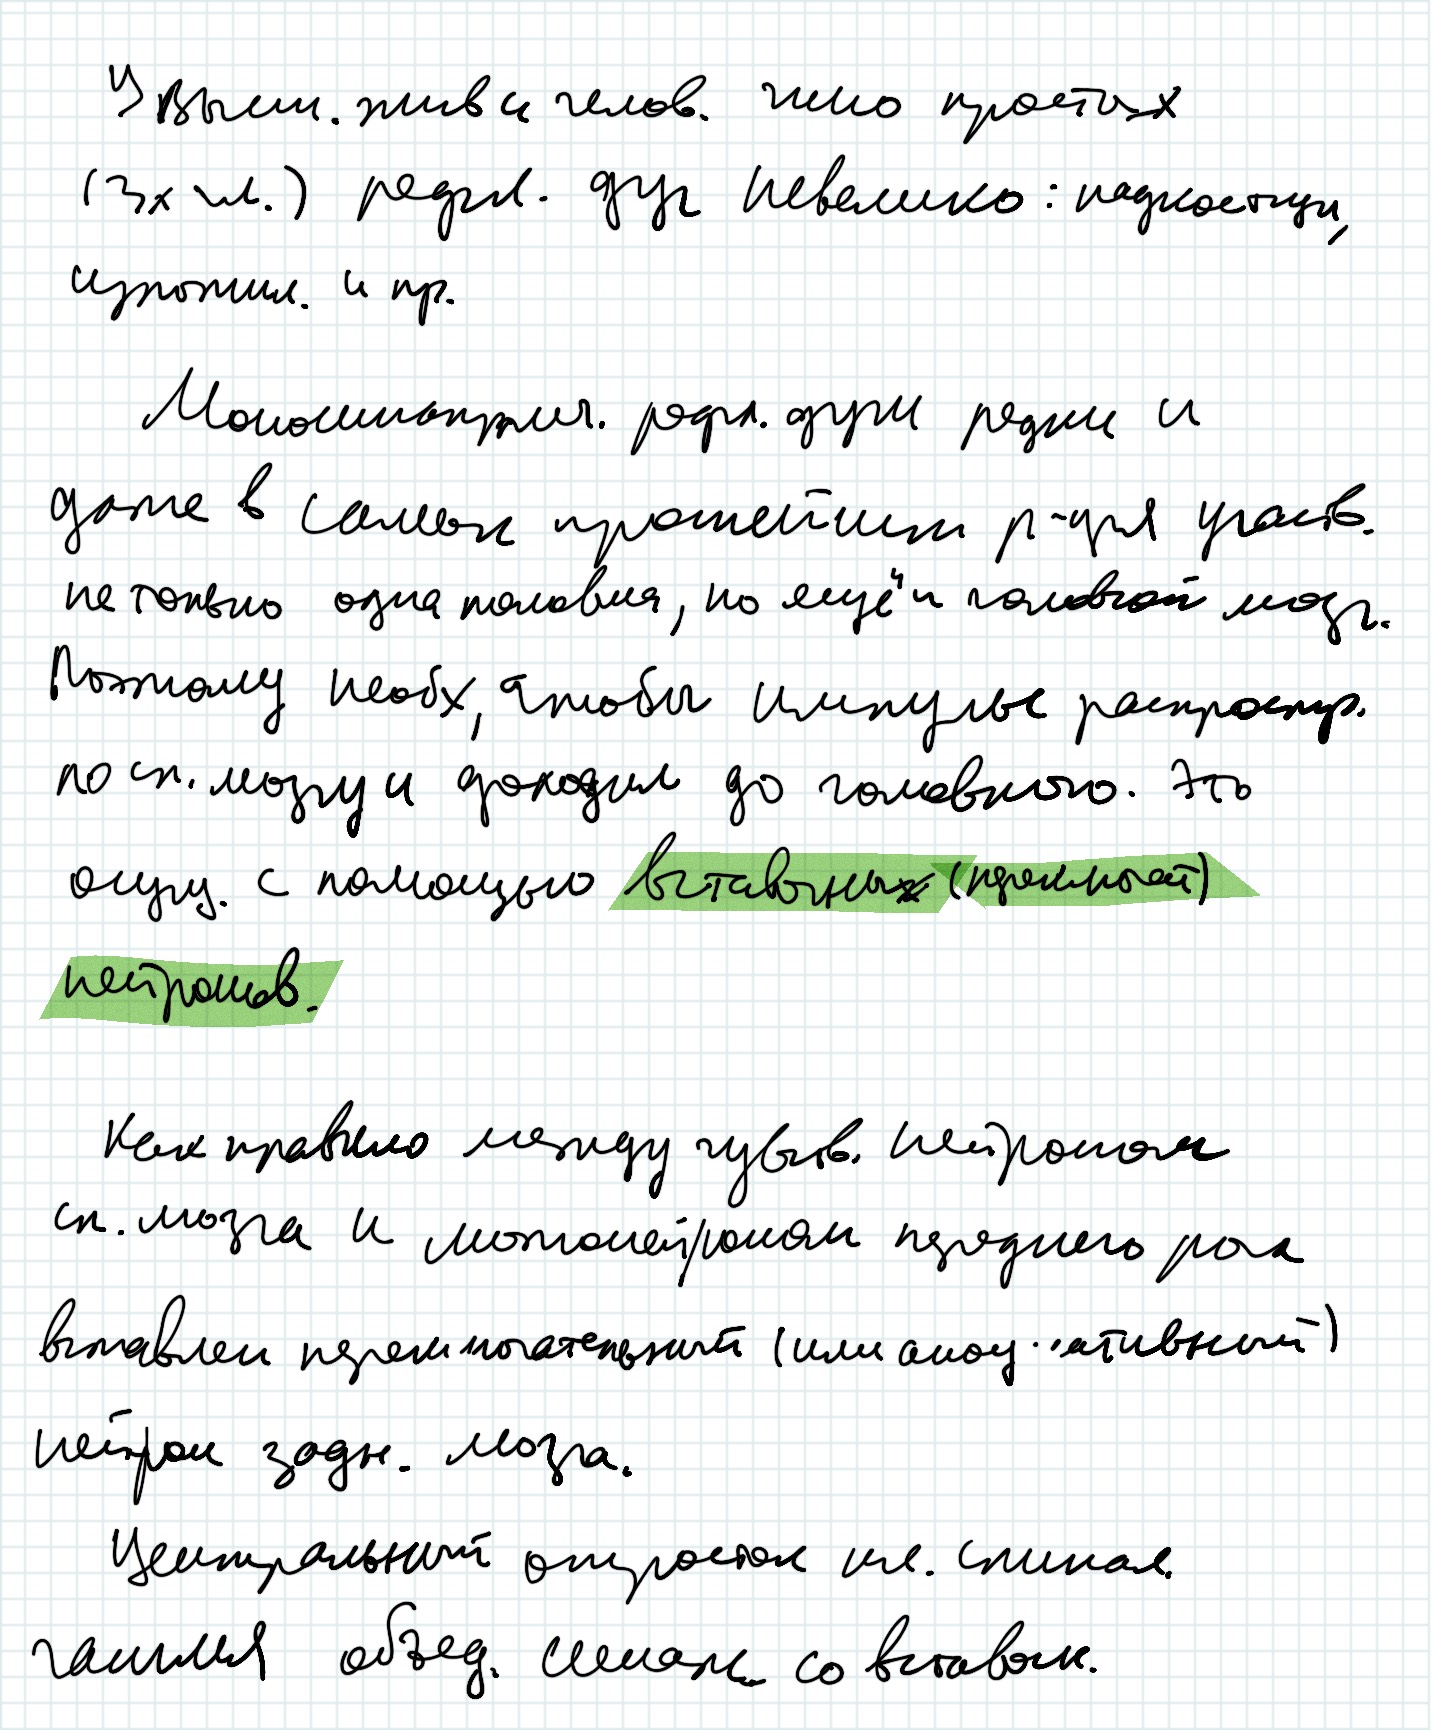 У высш. жив и челов. число простых
(3х чл.) рефл. дуг невелико: надкостнич,
сухожил. и пр.
Моносинаптич. рефл. дуги редки и
даже в самых простейших р-циях участв.
не только одна половина, но ещё и головной мозг.
Поэтому необх, чтобы импульс распростр.
по сп. мозгу и доходил до головного. Это
осущ. с помощью вставочных (переключат)
нейронов.
Как правило между чувств. нейроном
сп. мозга и мотонейроном переднего рога
вставлен переключательный (или ассоциативный)
нейрон задн. мозга.
Центральный отросток кл. спинал.
ганглия объед. синапс. со вставочн.